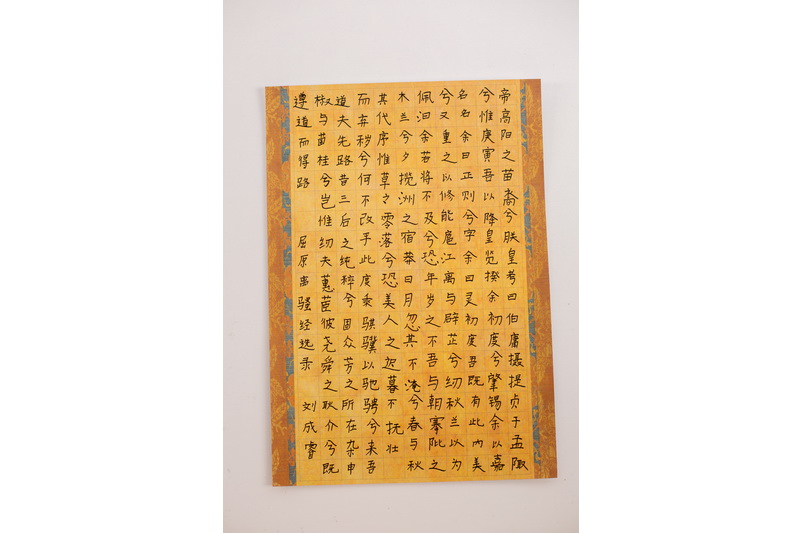 帝高阳之苗裔兮朕皇考曰伯庸摄提贞于孟陬
兮惟庚寅吾以降皇览揆余初度兮肇锡余以嘉
名名余曰正则兮字余曰灵初度吾既有此内美
兮又重之以修能扈江离与辟芷兮纫秋兰以为
佩汩余若将不及兮恐年岁之不吾与朝搴阰之
木兰兮夕揽洲之宿莽日月忽其不淹兮春与秋
其代序惟草之零落兮恐美人之迟暮不抚壮
而弃秽兮何不改乎此度乘骐骥以驰骋兮来吾
道夫先路昔三后之纯粹兮固众芳之所在杂申
椒与菌桂兮岂惟纫夫蕙茝彼尧舜之耿介兮既
遵道而得路 屈原离骚经选录 刘成睿